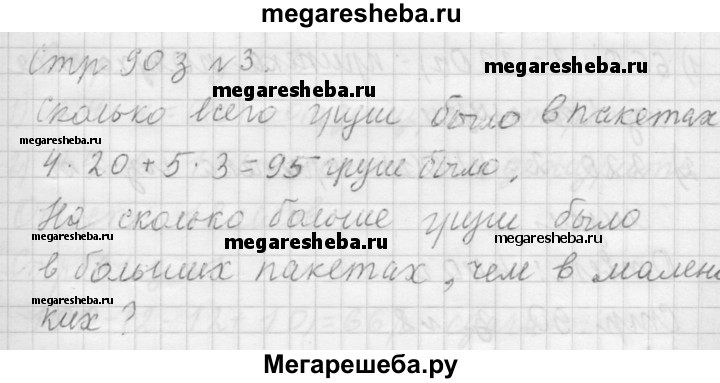 megaresheba.ru
Стр 90 з №3.
megaresheba.ru
Сколько всего груш было в пакетах
megaresheba.ru
4 · 20 + 5 · 3 = 95 груш было.
На сколько больше груш было
megaresheba.ru megaresheba.ru megaresheba.ru
в больших пакетах, чем в мален
megaresheba.ru
ких?
Мегарешеба.ру